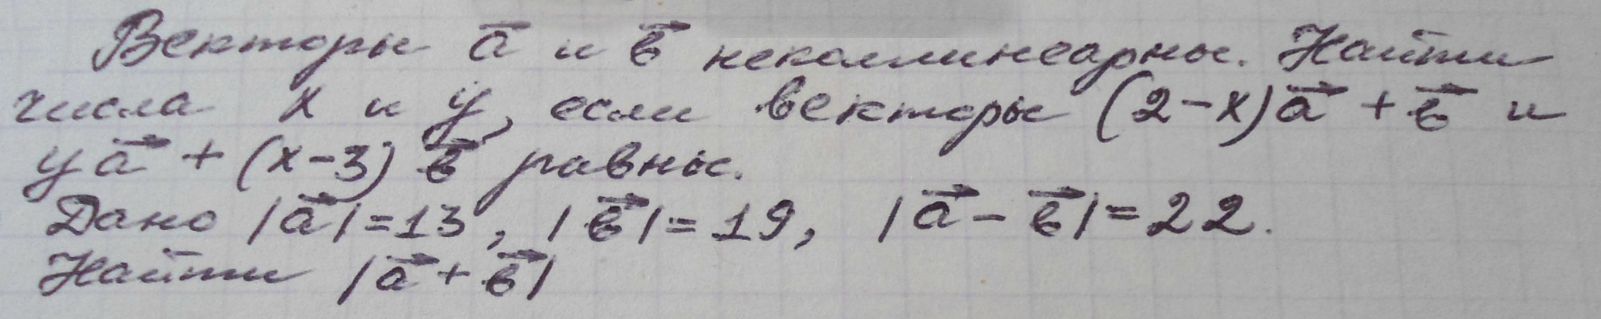 Векторы a⃗ и b⃗ неколлинеарны. Найти
числа x и y, если векторы (2-x)a⃗ + b⃗ и
ya⃗ + (x-3)b⃗ равны.
Дано |a⃗|=13, |b⃗|=19, |a⃗-b⃗|=22.
Найти |a⃗+b⃗|